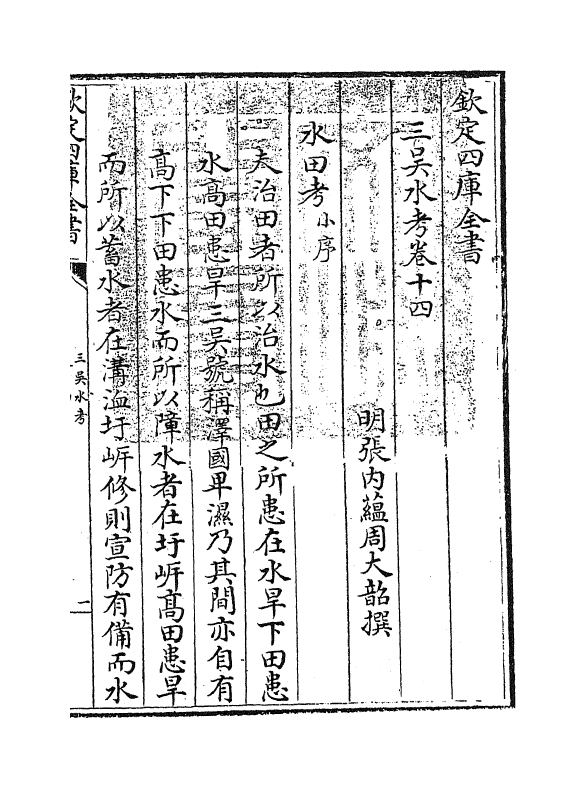 欽定四庫全書
三吳水考卷十四
明張内藴周大韶撰
水田考小序
夫治田者所以治水也田之所患在水旱下田患
水高田患旱三吳號稱澤國卑濕乃其間亦自有
髙下下田患水而所以障水者在圩岸髙田患旱
而所以蓄水者在溝洫圩岸修則宣防有備而水
欽定四庫全書
三吳水考
一